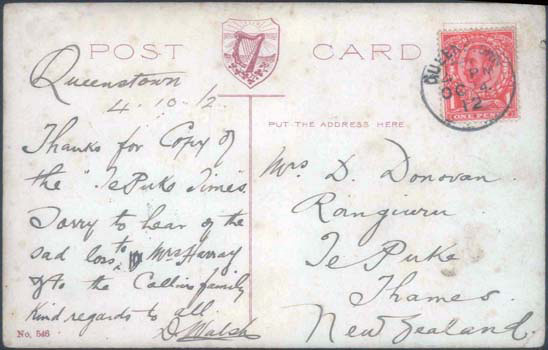 POST CARD
Queenstown
4.10.12
PUT THE ADDRESS HERE.
Thanks for Copy of
the "Te Puke Times"
Sorry to hear of the
sad loss to Mrs Harray
& to the Collins family
Kind regards to all
D Walsh
No. 546
Mrs D. Donovan
Rangiuru
Te Puke
Thames.
New Zealand.
PM
OC 4
12
ONE PENNY